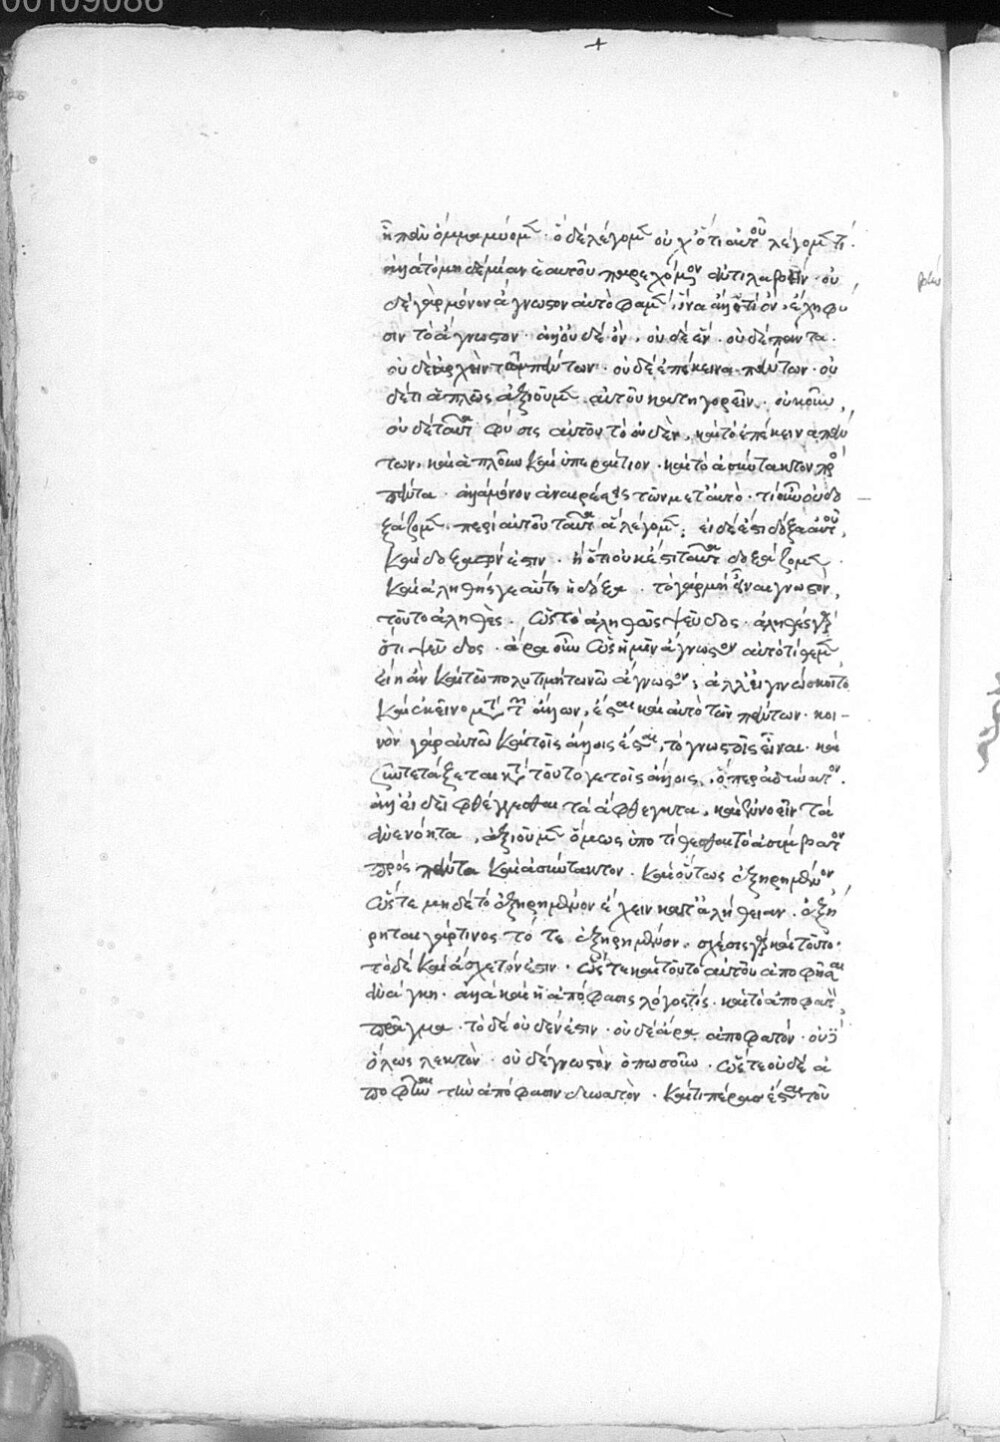 00109086
+
ἢ πᾶν ὄμμα μύομεν. ὃ δὲ λέγομεν οὐχ ὅτι αὐτοῦ λέγομέν τι.
ἀλλὰ τομὴ δεμίαν ἑαυτοῦ παρεχόμενον ἀντιλαβεῖν. οὐ
δὲ γὰρ μόνον ἄγνωστον αὐτὸ φαμέν, ἵνα ἄλλό τι ὄν, ἔχῃ φύ
σιν τὸ ἄγνωστον. ἀλλ' οὐδὲ ὄν, οὐδὲ ἕν. οὐδὲ πάντα.
οὐδὲ ἀρχὴν τῶν πάντων. οὐδὲ ἐπέκεινα πάντων. οὐ
δέ τι ἁπλῶς ἀξιοῦμεν αὐτοῦ κατηγορεῖν. οὐκοῦν,
οὐδὲ ταῦτα φύσις αὐτοῦ τὸ οὐδὲν, καὶ τὸ ἐπέκεινα πάν
των, καὶ ἁπλοῦν καὶ ὑπεραίτιον. καὶ τὸ ἀσύντακτον πρὸς
πάντα. ἀλλὰ μόνον ἀναιρέσεις τῶν μετ' αὐτό. τί οὖν οὐ δο
ξάζομεν περὶ αὐτοῦ ταῦτα ἃ λέγομεν; εἰ δέ ἐστι δόξα αὐτοῦ,
καὶ δοξαστόν ἐστιν. ἢ ὅτι οὐκ ἔστι ταῦτα δοξάζομεν.
καὶ ἀληθής γε αὕτη ἡ δόξα. τὸ γὰρ μὴ εἶναι γνωστόν,
τοῦτο ἀληθές. ὡς τὸ ἀληθῶς ψεῦδος. ἀληθὲς γὰρ
ὅτι ψεῦδος. ἆρα οὖν ὡς ἡμῖν ἄγνωστον αὐτὸ τίθεμεν,
εἴη ἂν καὶ τῶ πολυτιμήτω νῶ ἄγνωστον; ἀλλ' εἰ γινώσκοιτο
καὶ ἐκεῖνο μετὰ τῶν ἄλλων, ἔσται καὶ αὐτὸ τῶν πάντων. κοι-
νὸν γὰρ αὐτῶ καὶ τοῖς ἄλλοις ἔσται, τὸ γνωστοῖς εἶναι. καὶ
συντετάξεται κατὰ τοῦτό γε τοῖς ἄλλοις, ὅπερ ἀδύνατον.
ἀλλ' εἰ δεῖ φθέγγεσθαι τὰ ἄφθεγκτα, καὶ ἐννοεῖν τὰ
ἀνεννόητα, ἀξιοῦμεν ὅμως ὑποτίθεσθαι τὸ ἀσύμβατον
πρὸς πάντα καὶ ἀσύντακτον. καὶ οὕτως ἐξῃρημένον,
ὥστε μηδὲ τὸ ἐξῃρημένον ἔχειν κατ' ἀλήθειαν. ἐξῄ
ρηται γάρ τινος τό τε ἐξῃρημένον. σχέσις γὰρ καὶ τοῦτο.
τὸ δὲ καὶ ἄσχετόν ἐστιν. ὥστε καὶ τοῦτο αὐτοῦ ἀποφῆσαι
ἀνάγκη. ἀλλὰ καὶ ἡ ἀπόφασις λόγος τις. καὶ τὸ ἀποφατὸν,
πρᾶγμα. τὸ δὲ οὐδέν ἐστιν. οὐδὲ ἄρα ἀποφατόν. οὐδὲ
ὅλως λεκτὸν. οὐδὲ γνωστὸν ὁπωσοῦν. ὥστε οὐδὲ ἀ
ποφῆναι τὴν ἀπόφασιν δυνατὸν. καὶ τί πέρας ἔσται τοῦ